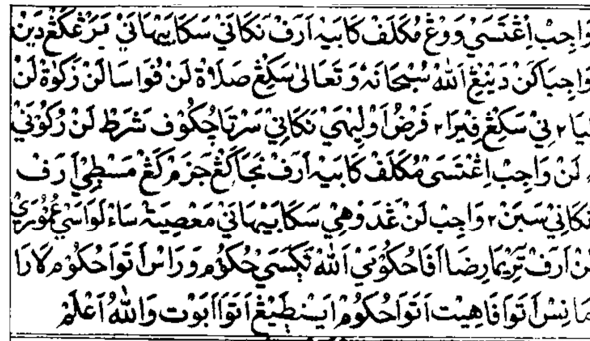 واجب اڠتسي ووڠ مکلف کابيه أرف نکاني سکابيهاني برڠکڠ دين
واجباکن دينيڠ الله سبحانه وتعالى سکڠ صلاة لن فواسا لن زکوة لن
ليا٢ني سکڠ فيرا٢ فرض أوليهي نکاني سرتا جکوف شرط لن رکوني
لن واجب اڠتسي مکلف کابيه أرف نجاکڠ جزم کڠ مسطي أرف
نکاني سبن٢ واجب لن غدوهي سکابيهاني معصية ساء لواسي عموري
لن أرف تريما رضا افا حکومي الله تکسي حکوم وراس أتوا حکوم لارا
مانس أتوا فاهيت أتوا حکوم اينطيڠ أتوا ابوت والله أعلم